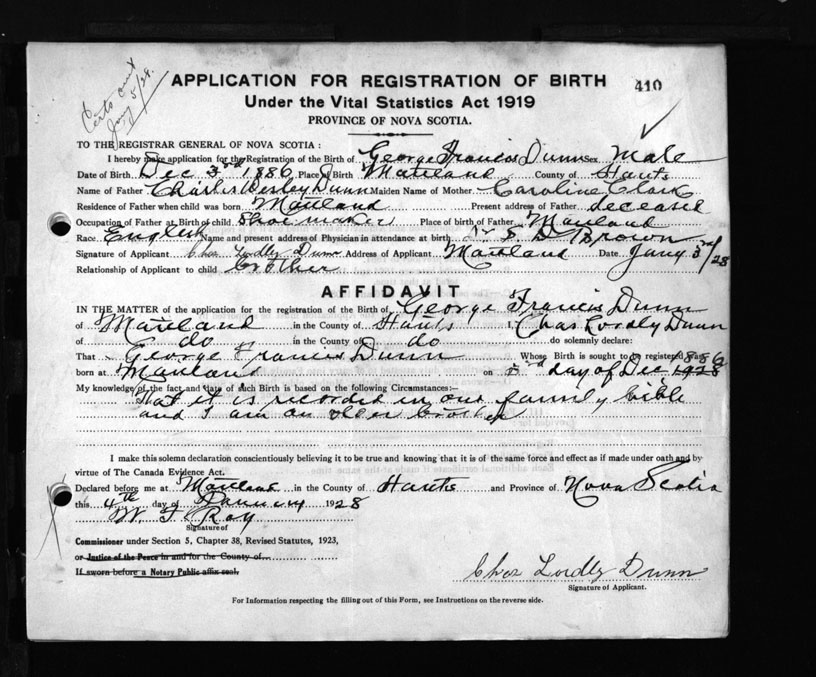 Certs out
Jany 5/28.
APPLICATION FOR REGISTRATION OF BIRTH
410
Under the Vital Statistics Act 1919
PROVINCE OF NOVA SCOTIA.
TO THE REGISTRAR GENERAL OF NOVA SCOTIA :
I hereby make application for the Registration of the Birth of George Francis Dunn Sex Male
Date of Birth Dec 3rd 1886 Place of Birth Maitland County of Hants
Name of Father Charles Wesley Dunn Maiden Name of Mother Caroline Clark
Residence of Father when child was born Maitland Present address of Father deceased
Occupation of Father at Birth of child Shoe maker Place of birth of Father, Maitland
Race English Name and present address of Physician in attendance at birth Dr S D Brown
Signature of Applicant Chas Lordly Dunn Address of Applicant Maitland Date Jany 3rd/28
Relationship of Applicant to child brother
AFFIDAVIT
IN THE MATTER of the application for the registration of the Birth of George Francis Dunn
of Maitland in the County of Hants I, Chas Lordly Dunn
of do in the County of do do solemnly declare:
That George Francis Dunn Whose Birth is sought to be registered was
born at Maitland on 3rd day of Dec, 1886
My knowledge of the fact and date of such Birth is based on the following Circumstances:—
That it is recorded in our family bible
and I am an older brother
I make this solemn declaration conscientiously believing it to be true and knowing that it is of the same force and effect as if made under oath and by
virtue of The Canada Evidence Act.
Declared before me at Maitland in the County of Hants and Province of Nova Scotia
this 4th day of January 1928
W. F. Roy
Signature of
Commissioner under Section 5, Chapter 38, Revised Statutes, 1923,
or Justice of the Peace in and for the County of
If sworn before a Notary Public affix seal,
Chas Lordly Dunn
Signature of Applicant.
For Information respecting the filling out of this Form, see Instructions on the reverse side.